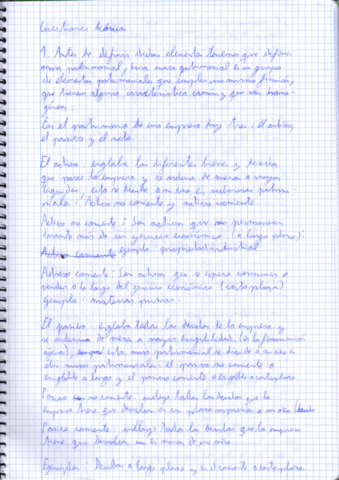 Cuestiones teóricas
1. Antes de definir dichos elementos tenemos que definir
masa patrimonial, una masa patrimonial es un grupo
de elementos patrimoniales que cumplen una misma función,
que tienen alguna característica común y que son homo-
géneos.
En el patrimonio de una empresa hay tres: el activo,
el pasivo y el neto.
El activo: engloba los diferentes bienes y derechos
que posee la empresa y se ordena de menor a mayor
liquidez, esta se divide a su vez en submasas patrimo-
niales: Activo no corriente y activo corriente.
Activo no corriente: Son activos que van a permanecer
durante más de un ejercicio económico (a largo plazo).
Activo corriente ejemplo: propiedad industrial
Activo corriente: Son activos que se espera consumir o
vender a lo largo del ejercicio económico (corto plazo)
ejemplo: materias primas.
El pasivo: engloba todas las deudas de la empresa y
se ordena de menor a mayor exigibilidad (es la financiación
ajena), esta masa patrimonial se divide a su vez en
dos masas patrimoniales: el pasivo no corriente o
exigible a largo y el pasivo corriente o exigible a corto plazo.
Pasivo no corriente: incluye todas las deudas que la
empresa tiene que devolver en un plazo superior a un año
Pasivo corriente: incluye todas las deudas que la empresa
tiene que devolver en menos de un año.
Ejemplos: Deudas a largo plazo y en el corriente a corto plazo.